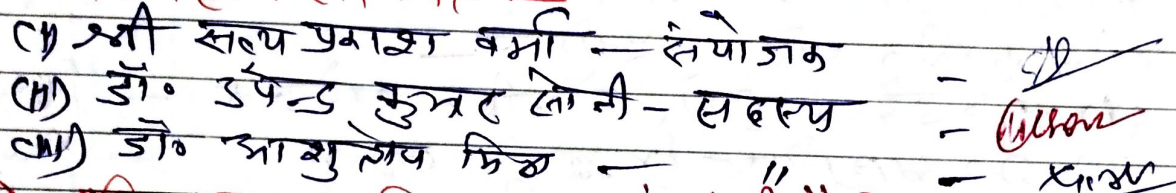 (i) श्री सत्य प्रकाश वर्मा — संयोजक -
(ii) डॉ॰ उपेन्द्र कुमार सोनी - सदस्य -
(iii) डॉ॰ आशुतोष मिश्र — " -